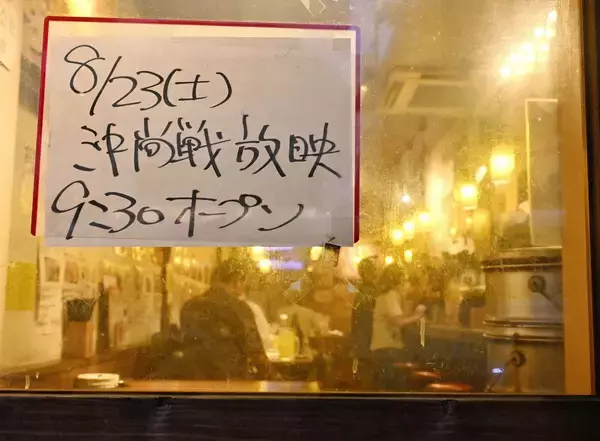 8/23(土)
沖尚戦放映
9:30オープン